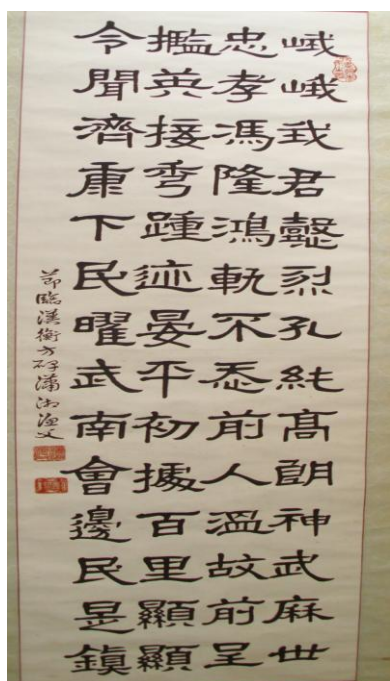 峨峨我君懿烈孔純高朗神武麻世
忠孝馮隆鴻軌不忝前人溫故前呈
攬英接秀踵迹晏平初據百里顯顯
令聞濟康下民曜武南會邊民是鎮
節臨漢衡方碑瀟湘漁父